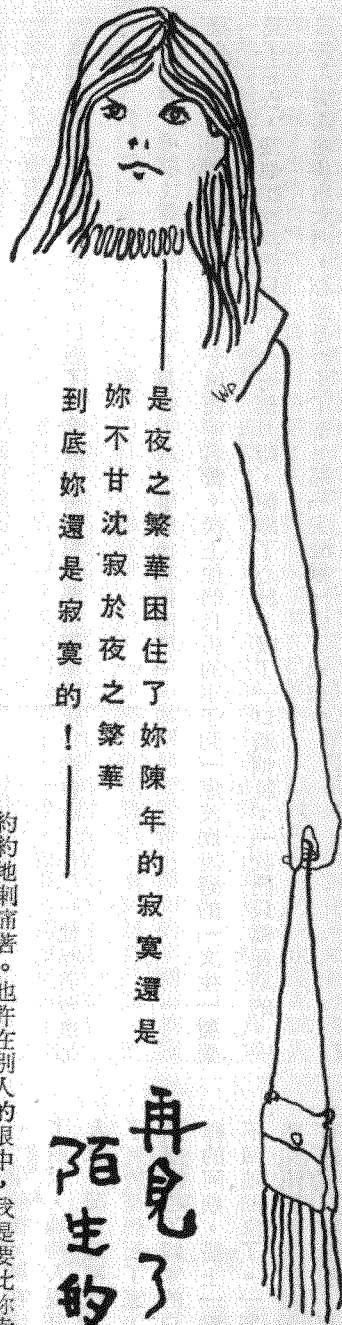 ——是夜之繁華困住了妳陳年的寂寞還是
妳不甘沈寂於夜之繁華
到底妳還是寂寞的!——
再見了
陌生的
約約地刺痛著。也許在別人的眼中,我是要比你